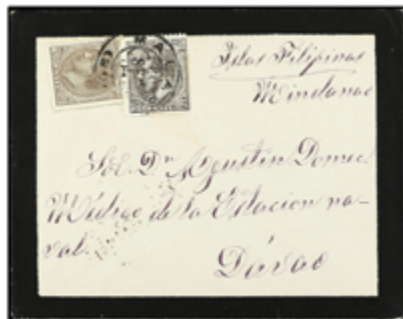 Islas Filipinas
Mindanao
Sor. Dn Agustin Domec.
Médico de la Estacion na-
val.
Dávao